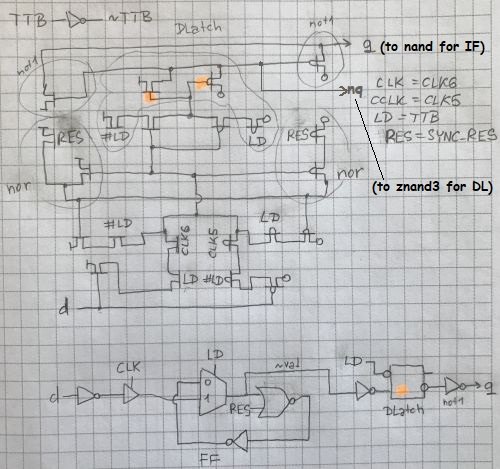 TTB ~TTB
DLatch
not1
q (to nand for IF)
not1
nq
CLK = CLK6
CCLK = CLK5
LD = TTB
RES = SYNC_RES
#LD
LD
RES
RES
nor
nor
(to znand3 for DL)
#LD
CLK6
CLK5
LD
LD
#LD
d
LD
CLK
~val
LD
d
0
1
RES
DLatch
not1
q
FF